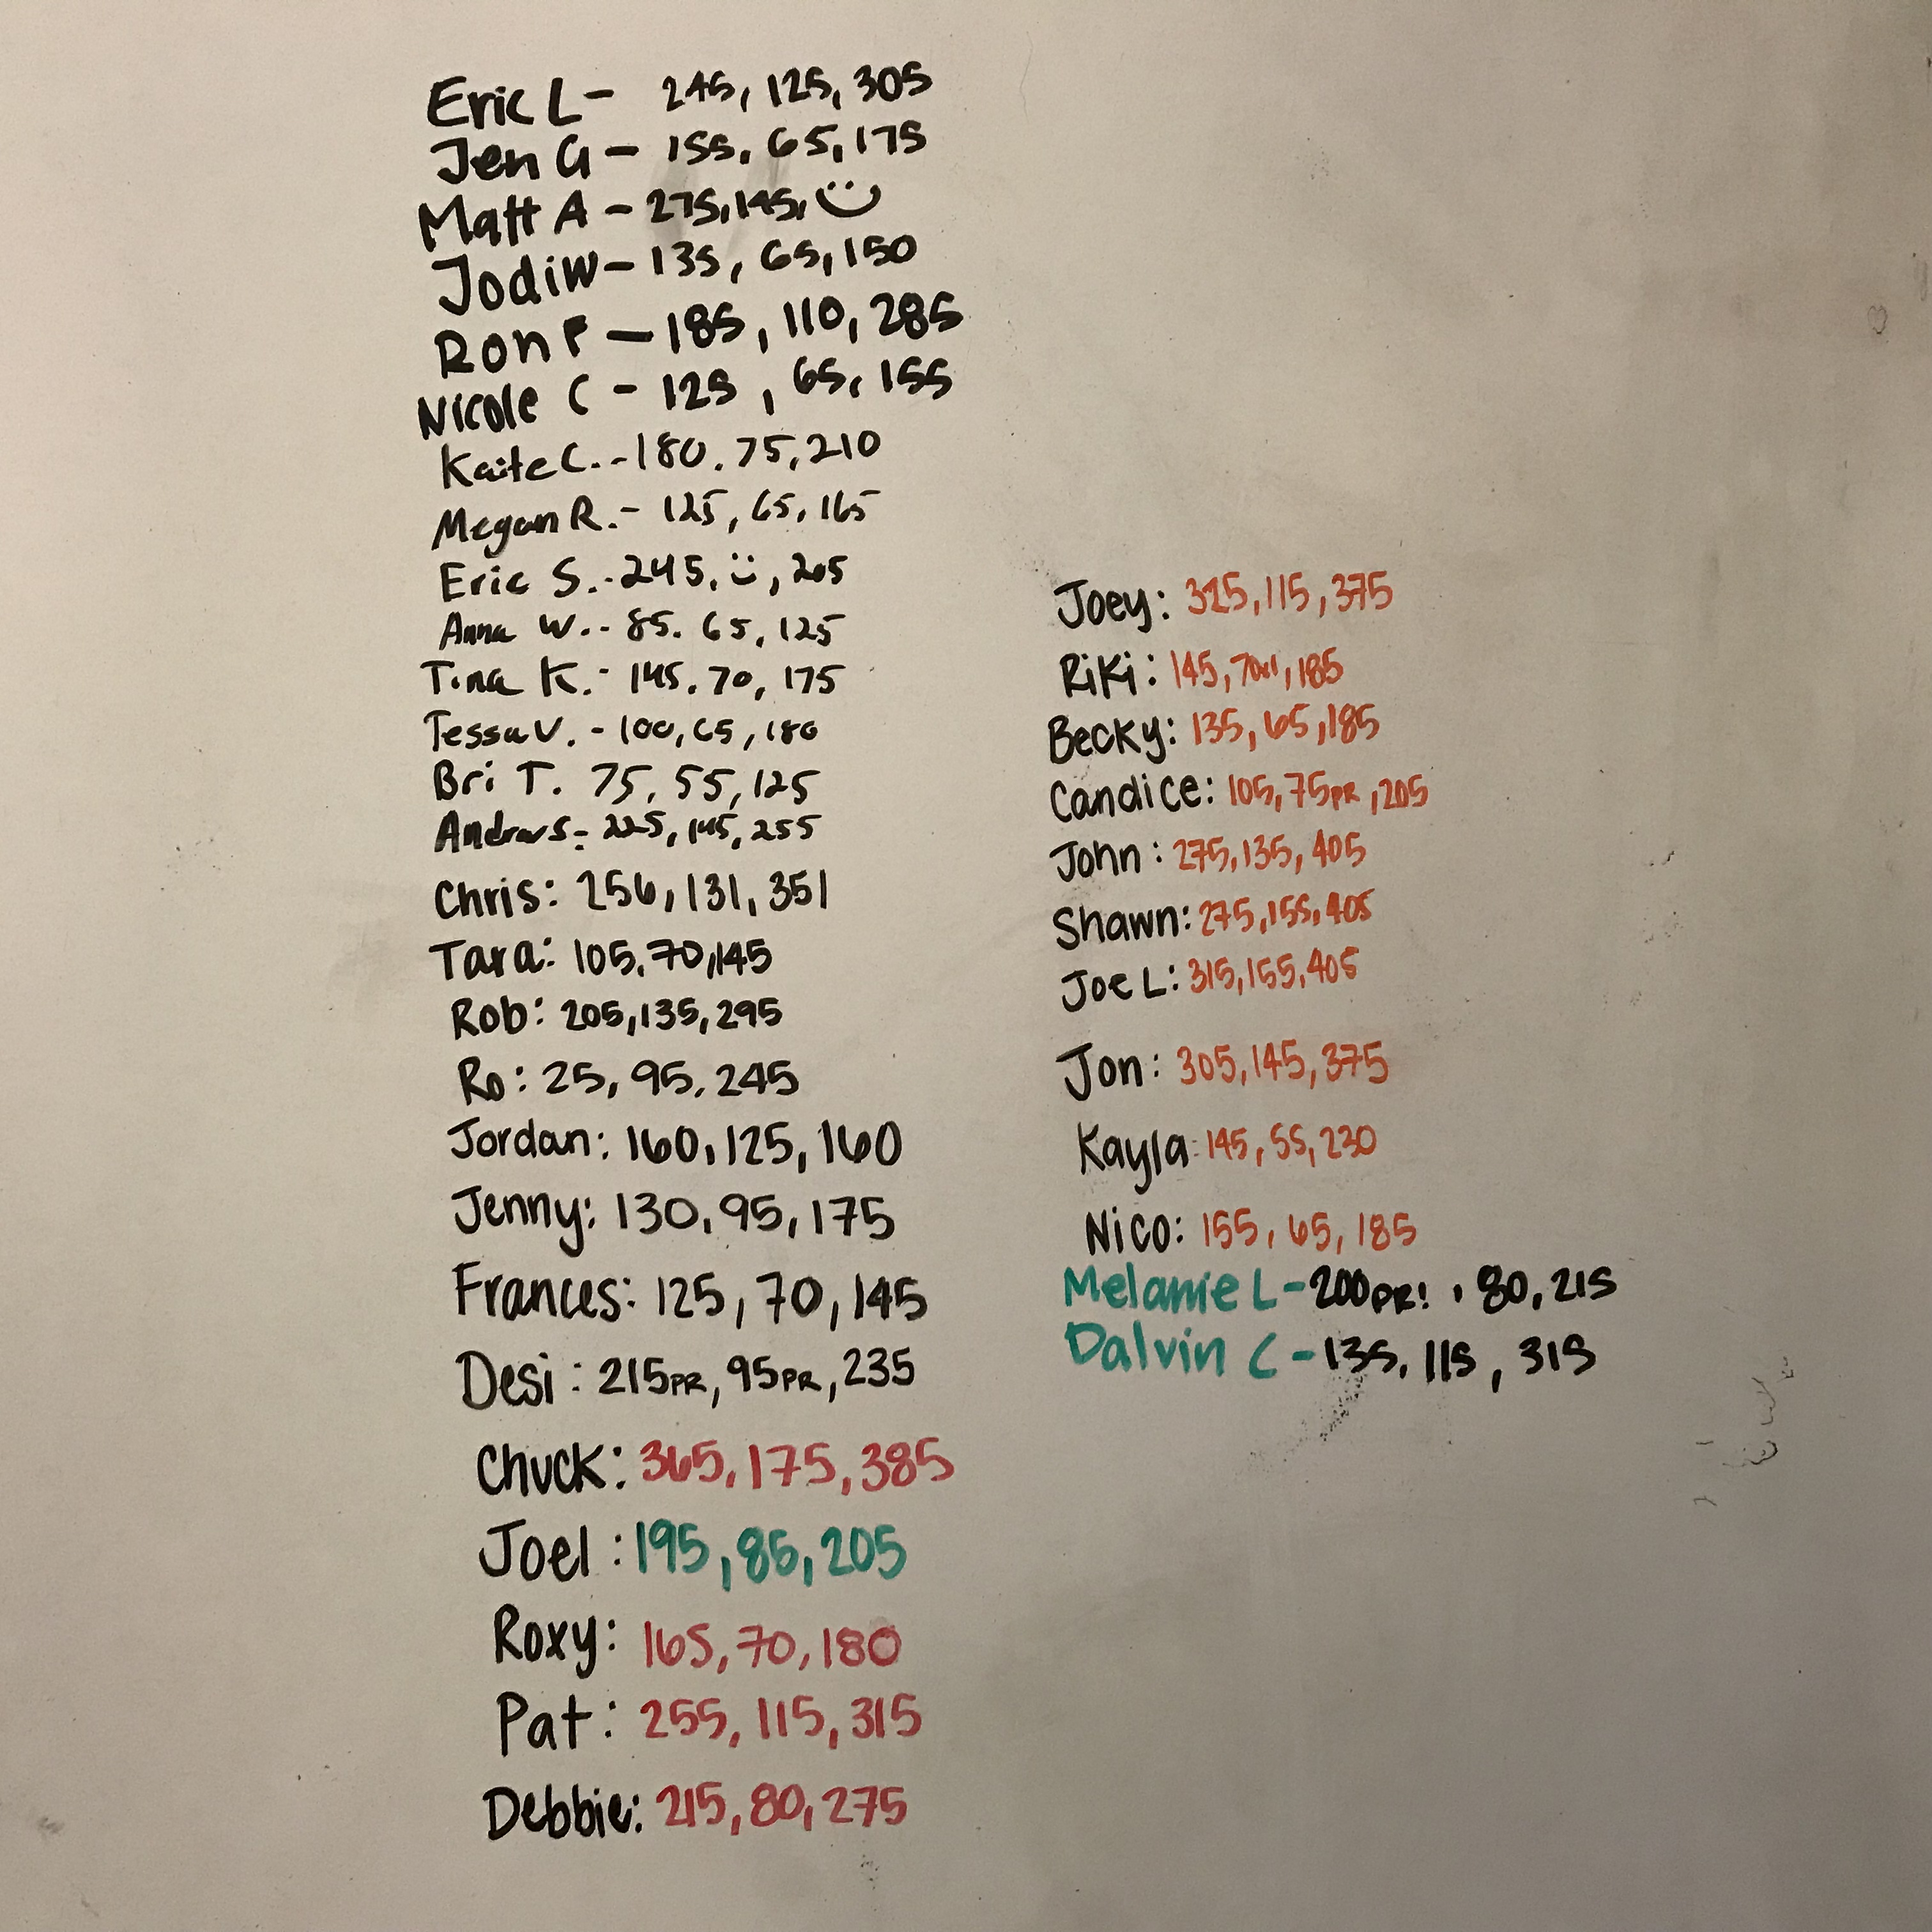 Eric L - 245, 125, 305
Jen G - 155, 65, 175
Matt A - 275, 145,
Jodi W - 135, 65, 150
Ron P - 185, 110, 285
Nicole C - 125, 65, 155
Kaite C. -- 180. 75, 210
Megan R. - 125, 65, 165
Eric S. -- 245, , 265
Anna W. -- 85. 65, 125
Tina K. - 145. 70, 175
Tessa V. - 100, 65, 180
Bri T. 75, 55, 125
225, 145, 255
Chris: 256, 131, 351
Tara: 105, 70, 145
Rob: 205, 135, 295
Ro: 25, 95, 245
Jordan: 160, 125, 160
Jenny: 130, 95, 175
Frances: 125, 70, 145
Desi: 215PR, 95PR, 235
Chuck: 365, 175, 385
Joel: 195, 85, 205
Roxy: 165, 70, 180
Pat: 255, 115, 315
Debbie: 215, 80, 275
Joey: 115, 375
Riki: 145, 185
Becky: 135, 65, 185
Candice: 105, 75PR, 205
John: 275, 135, 405
Shawn: 275, 155, 405
Joe L: 315, 155, 405
Jon: 305, 145, 375
Kayla: 145, 55, 230
Nico: 155, 65, 185
Melanie L - 200PR!, 80, 215
Dalvin C - 135, 115, 315